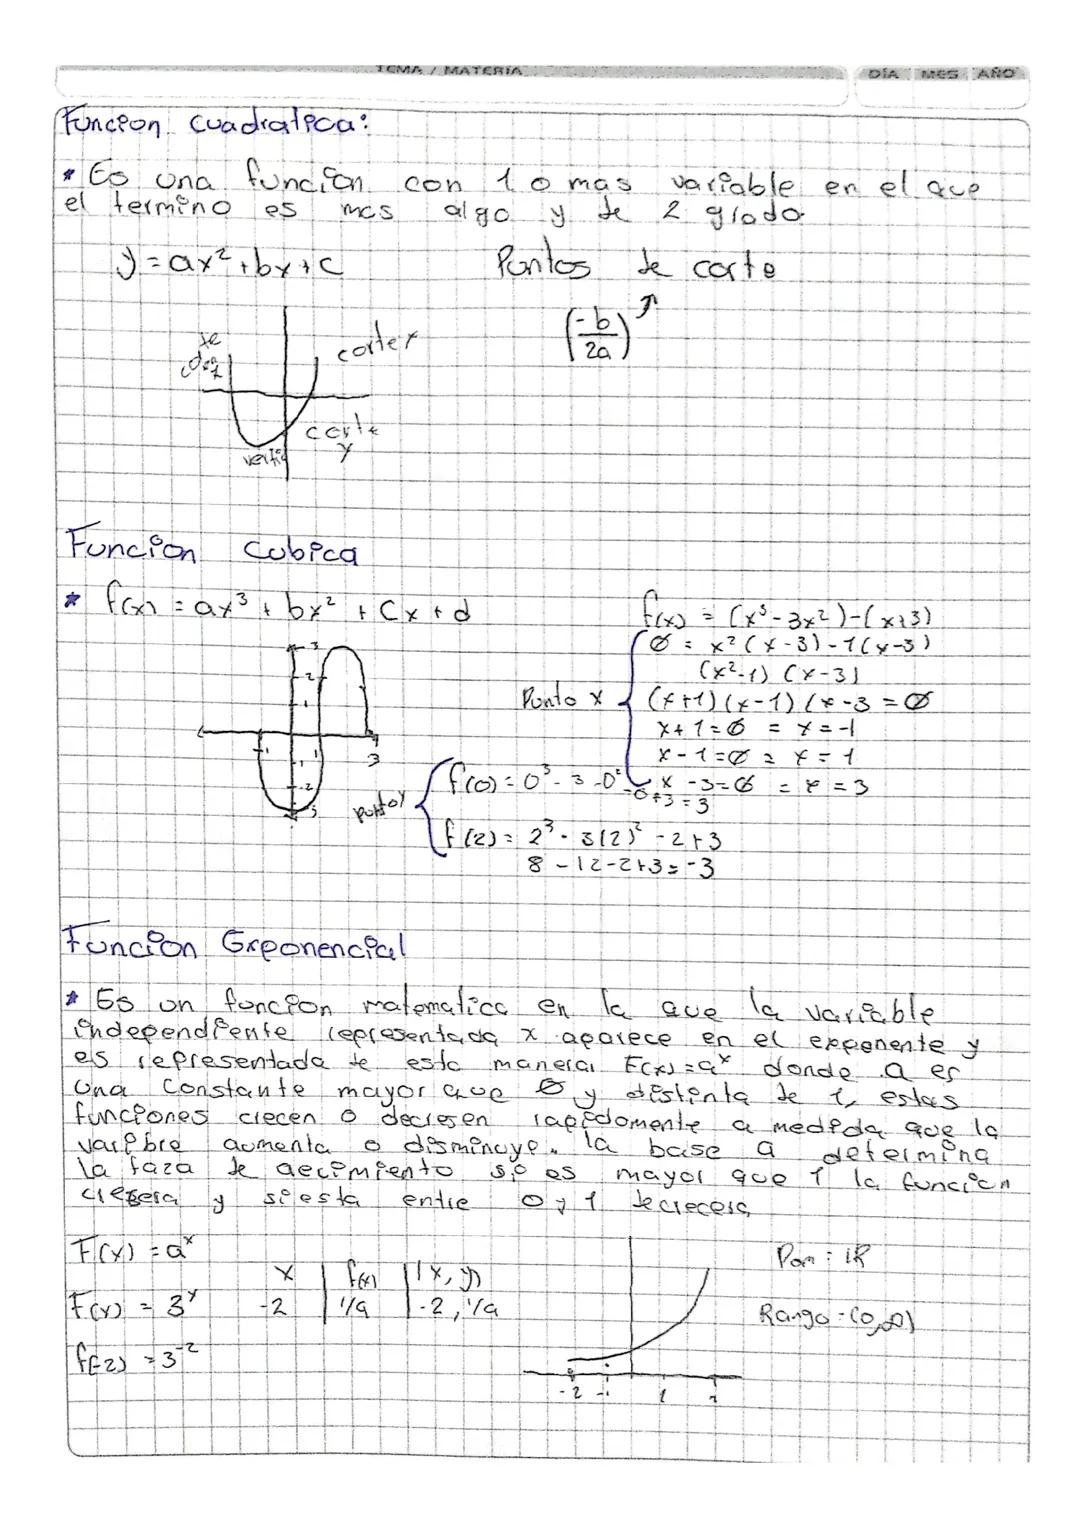 TEMA / MATERIA
DÍA MES AÑO
Función cuadratica:
* Es una función con 1 o mas variable en el que
el termino es mas algo y de 2 grado
y = ax² + bx + c
Puntos de corte
(-b/2a)
corte x
corte
y
Funcion Cubica
* f(x) = ax³ + bx² + Cx + d
f(x) = (x³ - 3x²) - (x+3)
0 = x² (x - 3) - 1(x-3)
(x²-1) (x-3)
Punto x
(x+1) (x-1) (x-3 = 0
x + 1 = 0 = x = -1
x - 1 = 0 = x = 1
x - 3 = 0 = x = 3
3
2
1
-1 1
3
-1
-2
-3
punto y
f(0) = 0³ - 3 - 0² - 0 + 3 = 3
f(2) = 2³ - 3(2)² - 2 + 3
8 - 12 - 2 + 3 = -3
Funcion Exponencial
* Es un funcion matematica en la que la variable
independiente representada x aparece en el exponente y
es representada de esta manera F(x) = aˣ donde a es
una Constante mayor que 0 y distinta de 1, estas
funciones crecen o decresen rapidomente a medida que la
varibre aumenta o disminuye. la base a determina
la taza de aecimiento si es mayor que 1 la funcion
cresera y si esta entre 0 y 1 decrecera
F(x) = aˣ
x | f(x) | (x, y)
F(x) = 3ˣ
-2 | 1/9 | -2, 1/9
f(-2) = 3⁻²
-2 -1 1 2
Dom : IR
Rango = (0, ∞)